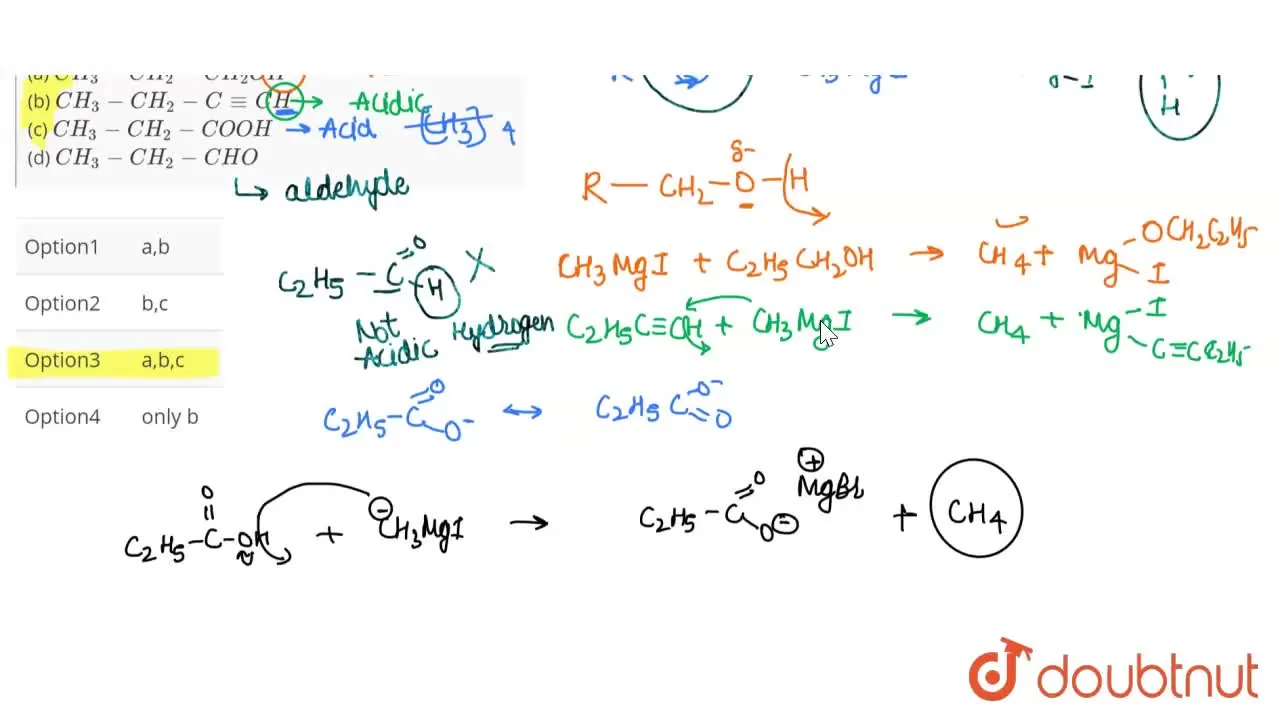 (a) CH₃ − CH₂ − CH₂OH
(b) CH₃ − CH₂ − C ≡ CH → Acidic
(c) CH₃ − CH₂ − COOH → Acid (CH3) 4
(d) CH₃ − CH₂ − CHO
↳ aldehyde
H
δ-I
δ-
R — CH₂ − O − H
Option1 a,b
Option2 b,c
Option3 a,b,c
Option4 only b
C₂H₅ − C = O H X
Not Acidic Hydrogen
CH₃MgI + C₂H₅CH₂OH → CH₄ + Mg OCH₂C₂H₅ I
C₂H₅C≡CH + CH₃MgI → CH₄ + Mg I C≡CC₂H₅
C₂H₅ − C = O O⁻ ↔ C₂H₅ C O⁻ = O
C₂H₅ − C = O − OH + ⊖CH₃MgI → C₂H₅ − C = O O⊖ ⊕MgBr + CH₄
doubtnut